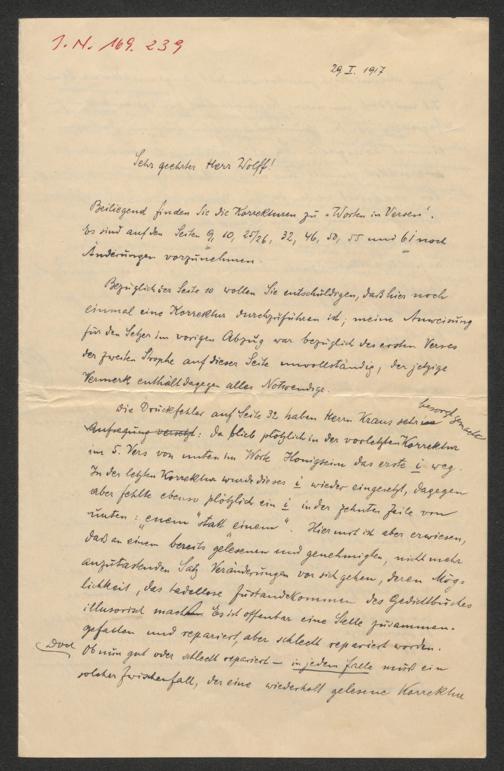 I.N. 169.239
29 I. 1917
Sehr geehrter Herr Wolff!
Beiliegend finden Sie die Korrekturen zu „Worten in Versen".
Es sind auf den Seiten 9, 10, 25/26, 32, 46, 50, 55 und 61 noch
Änderungen vorzunehmen.
Bezüglich der Seite 10 wollen Sie entschuldigen, daß hier noch
einmal eine Korrektur durchzuführen ist; meine Anweisung
für den Setzer im vorigen Abzug war bezüglich des ersten Verses
der zweiten Strophe auf dieser Seite unvollständig, der jetzige
Vermerk enthält dagegen alles Notwendige.
Die Druckfehler auf Seite 32 haben Herrn Kraus sehr besorgt gemacht
Aufregung versetzt: da blieb plötzlich in der vorletzten Korrektur
im 5. Vers von unten im Worte Honigseim das erste i weg.
In der letzten Korrektur wurde dieses i wieder eingesetzt, dagegen
aber fehlte ebenso plötzlich ein i in der zehnten Zeile von
unten: „enem" statt „einem". Hiermit ist aber erwiesen,
daß an einem bereits gelesenen und genehmigten, nicht mehr
anzutastenden Satz Veränderungen vor sich gehen, deren Mög-
lichkeit, das tadellose Zustandekommen des Gedichtbuches
illusorisch macht. Es ist offenbar eine Stelle zusammen-
gefallen und repariert, aber schlecht repariert worden.
Doch
Ob nun gut oder schlecht repariert – in jedem Falle muß ein
solcher Zwischenfall, der eine wiederholt gelesene Korrektur